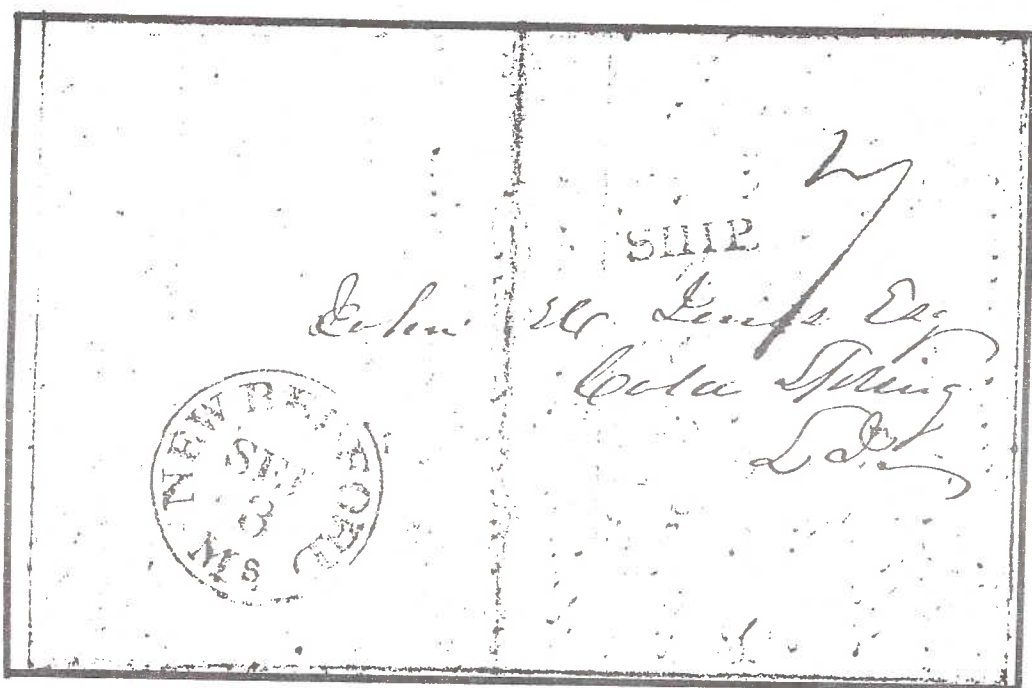 7
SHIP
John H. Esq
Cold Spring
L I
NEW BEDFORD
SEP
3
Ms